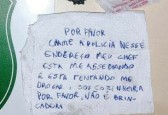 POR FAVOR
CHAME A POLICIA NESSE
ENDEREÇO MEU CHEF
ESTÁ ME
E ESTÁ TENTANDO ME
DROGAR, SOU COZINHEIRA
POR FAVOR, NÃO É BRIN-
CADEIRA